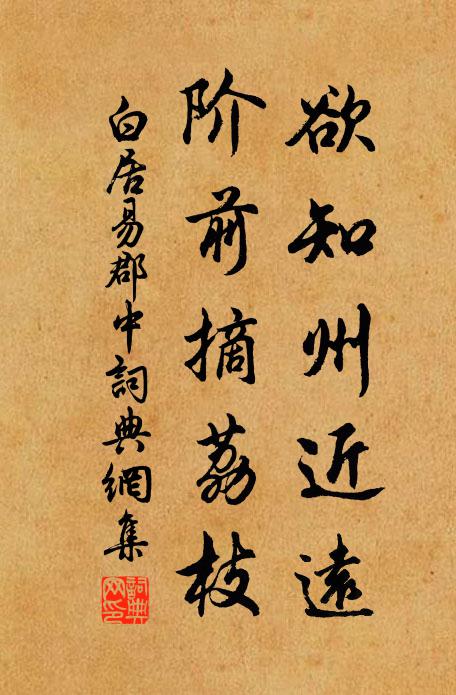 欲知州近遠
阶前摘荔枝
白居易郡中詞典網集
詞典网印